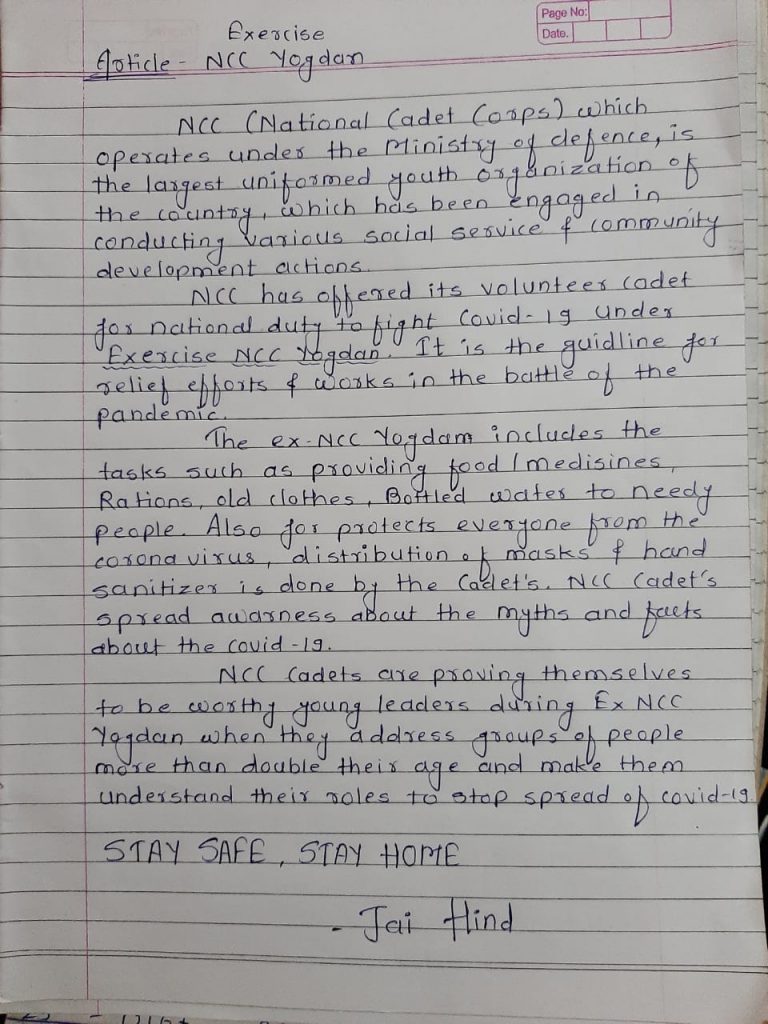 Page No:
Date.
Exercise
Article - NCC Yogdan
NCC (National Cadet Corps) which
operates under the Ministry of defence, is
the largest uniformed youth organization of
the country, which has been engaged in
conducting various social service & community
development actions.
NCC has offered its volunteer cadet
for national duty to fight Covid-19 under
Exercise NCC Yogdan. It is the guidline for
relief efforts & works in the battle of the
pandemic.
The ex-NCC Yogdam includes the
tasks such as providing food / medisines,
Rations, old clothes, Bottled water to needy
people. Also for protects everyone from the
corona virus, distribution of masks & hand
sanitizer is done by the Cadet's. NCC Cadet's
spread awarness about the myths and facts
about the covid-19.
NCC Cadets are proving themselves
to be worthy young leaders during Ex NCC
Yogdan when they address groups of people
more than double their age and make them
understand their roles to stop spread of covid-19.
STAY SAFE, STAY HOME
- Jai Hind